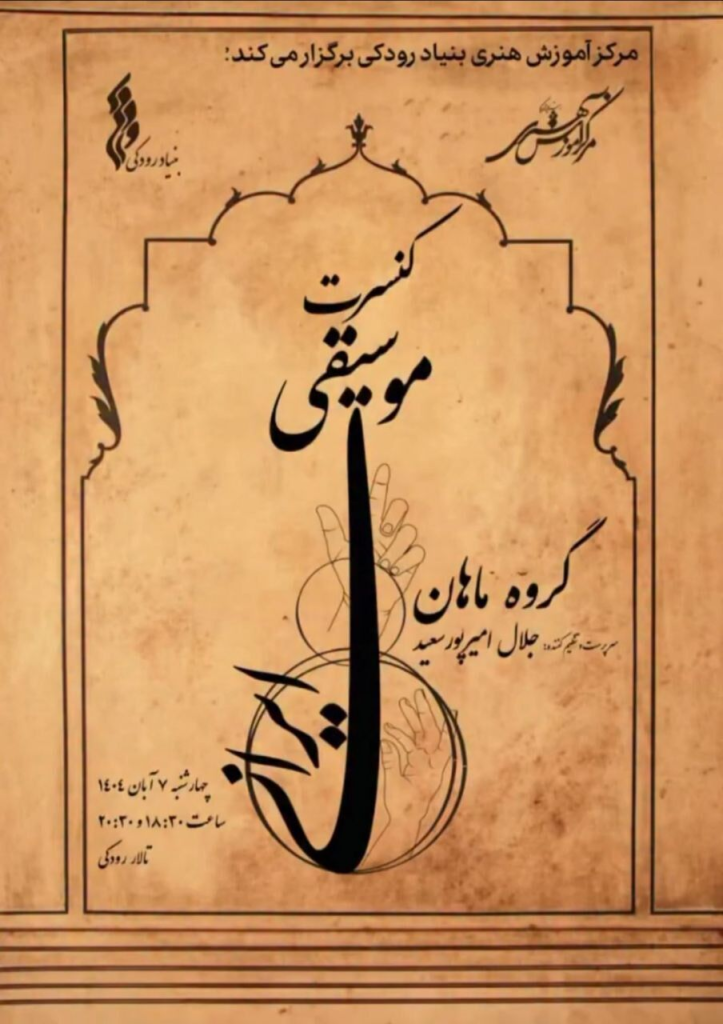 مرکز آموزش هنری بنیاد رودکی برگزار می‌کند:
مرکز آموزش هنری
بنیاد رودکی
کنسرت
موسیقی
ایرانی
گروه ماهان
سرپرست و تنظیم کننده: جلال امیرپورسعید
چهارشنبه ۷ آبان ۱۴۰۴
ساعت ۱۸:۳۰ و ۲۰:۳۰
تالار رودکی